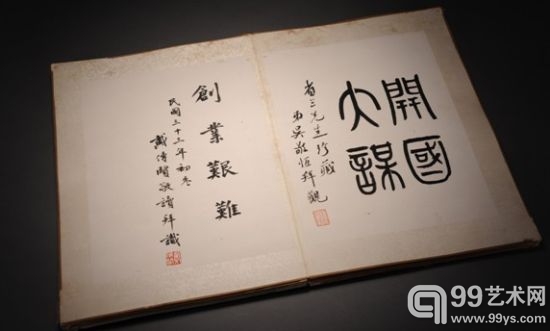 開國
大謀
省三先生珍藏
弟吳敬恆拜觀
創業艱難
民國三十三年初冬
戴傳賢敬讀拜識
99艺术网
www.99ys.com